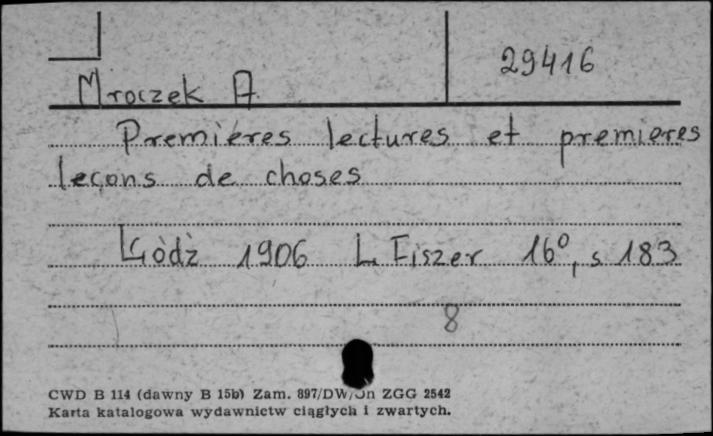 29416
Mroczek A.
Premières lectures et premieres
leçons de choses
Łódź 1906 L. Fiszer 16°, s 183
8
CWD B 114 (dawny B 15b) Zam. 897/DW/Jn ZGG 2542
Karta katalogowa wydawnictw ciągłych i zwartych.